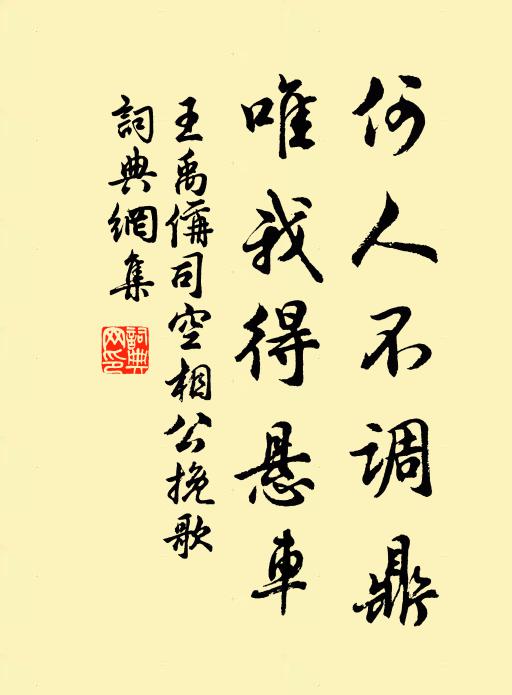 何人不调鼎
唯我得悬車
王禹偁司空相公挽歌
詞典網集
詞典网印